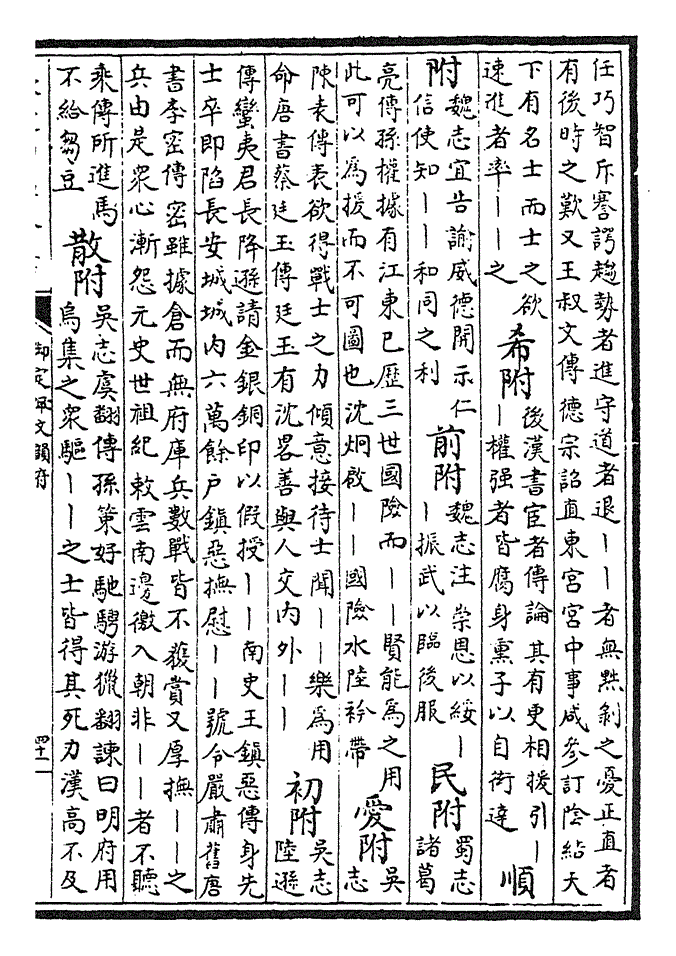 任巧智斥謇諤趨勢者進守道者退丨丨者無黜剝之憂正直者
有後時之歎又王叔文傳德宗詔直東宮宮中事咸參訂陰結天
下有名士而士之欲
速進者率丨丨之
希附
後漢書宦者傳論其有更相援引丨
丨權强者皆腐身熏子以自衒達
順
附
魏志宜告諭威德開示仁
信使知丨丨和同之利
前附
魏志注崇恩以綏丨
丨振武以臨後服
民附
蜀志
諸葛
亮傳孫權據有江東已歷三世國險而丨丨賢能爲之用
此可以爲援而不可圖也沈炯啟丨丨國險水陸衿帶
愛附
吳
志
陳表傳表欲得戰士之力傾意接待士聞丨丨樂爲用
命唐書蔡廷玉傳廷玉有沈畧善與人交內外丨丨
初附
吳志
陸遜
傳蠻夷君長降遜請金銀銅印以假授丨丨南史王鎮惡傳身先
士卒即陷長安城城內六萬餘户鎮惡撫慰丨丨號令嚴肅舊唐
書李密傳密雖據倉而無府庫兵數戰皆不獲賞又厚撫丨丨之
兵由是衆心漸怨元史世祖紀敕雲南邊徼入朝非丨丨者不聽
乘傳所進馬
不給芻豆
散附
吳志虞翻傳孫策好馳騁游獵翻諫曰明府用
烏集之衆驅丨丨之士皆得其死力漢高不及
御定佩文韻府
四十二